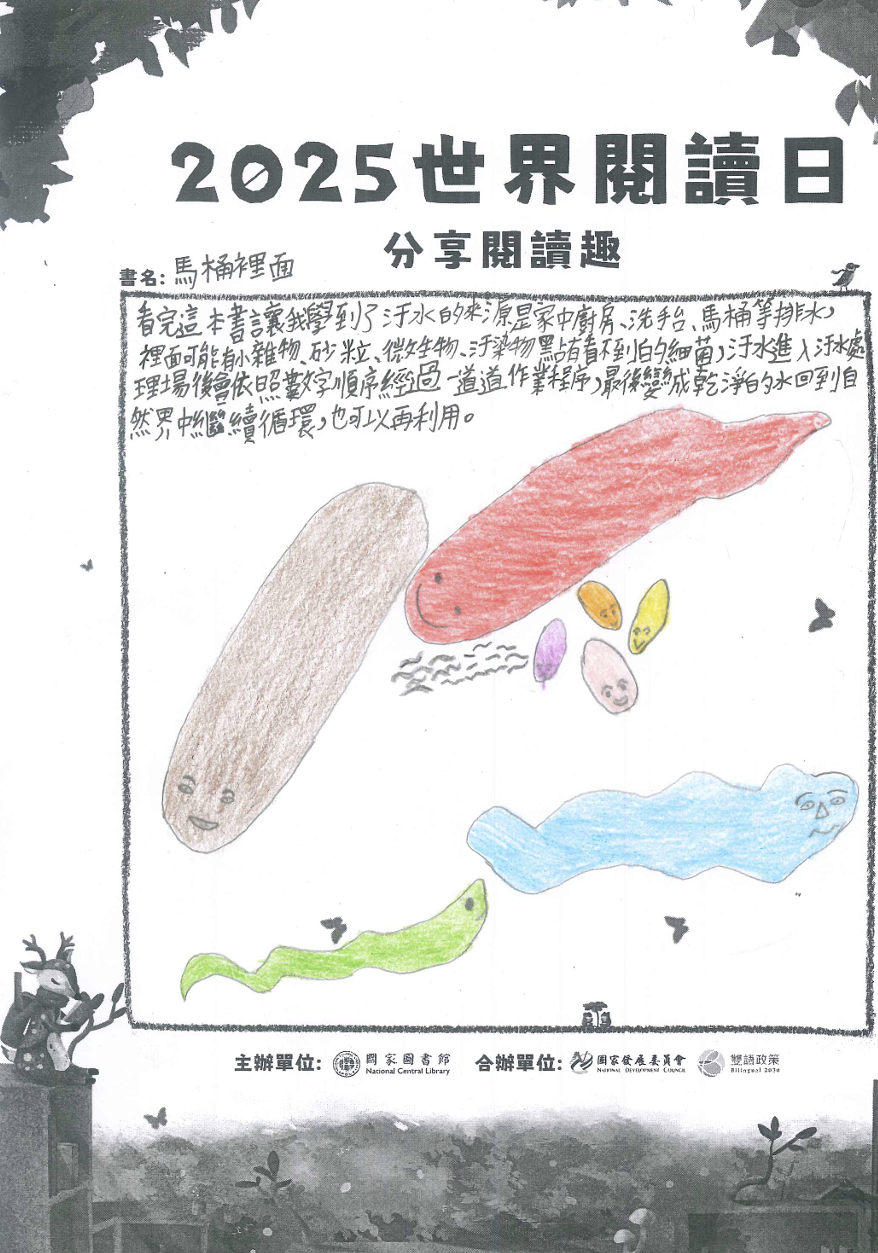 2025世界閱讀日
分享閱讀趣
書名: 馬桶裡面
看完這本書讓我學到了汙水的來源是家中廚房、洗手台、馬桶等排水,
裡面可能有小雜物、砂粒、微生物、汙染物
看不到的細菌,汙水進入汙水處
理場後會依照數字順序經過一道道作業程序,最後變成乾淨的水回到自
然界中繼續循環,也可以再利用。
主辦單位: 國家圖書館 合辦單位: 國家發展委員會 雙語政策
National Central Library NATIONAL DEVELOPMENT COUNCIL Bilingual 2030